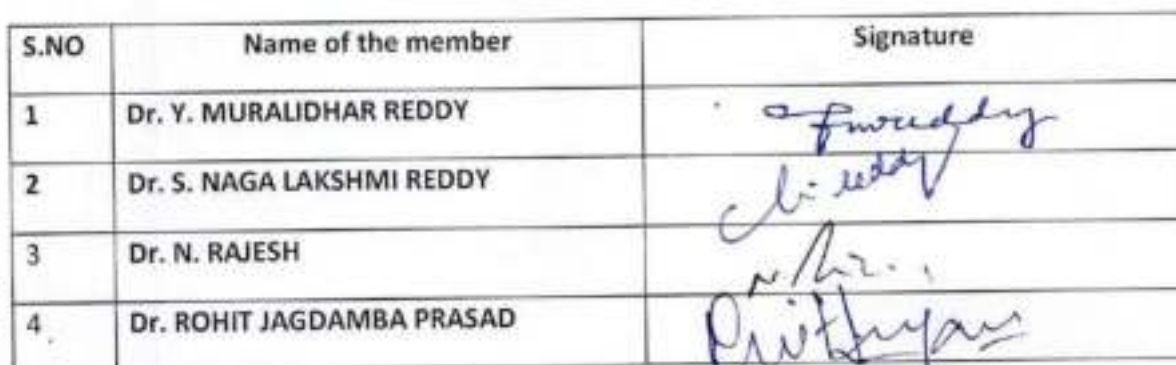 S.NO Name of the member Signature
1 Dr. Y. MURALIDHAR REDDY
2 Dr. S. NAGA LAKSHMI REDDY
3 Dr. N. RAJESH
4 Dr. ROHIT JAGDAMBA PRASAD